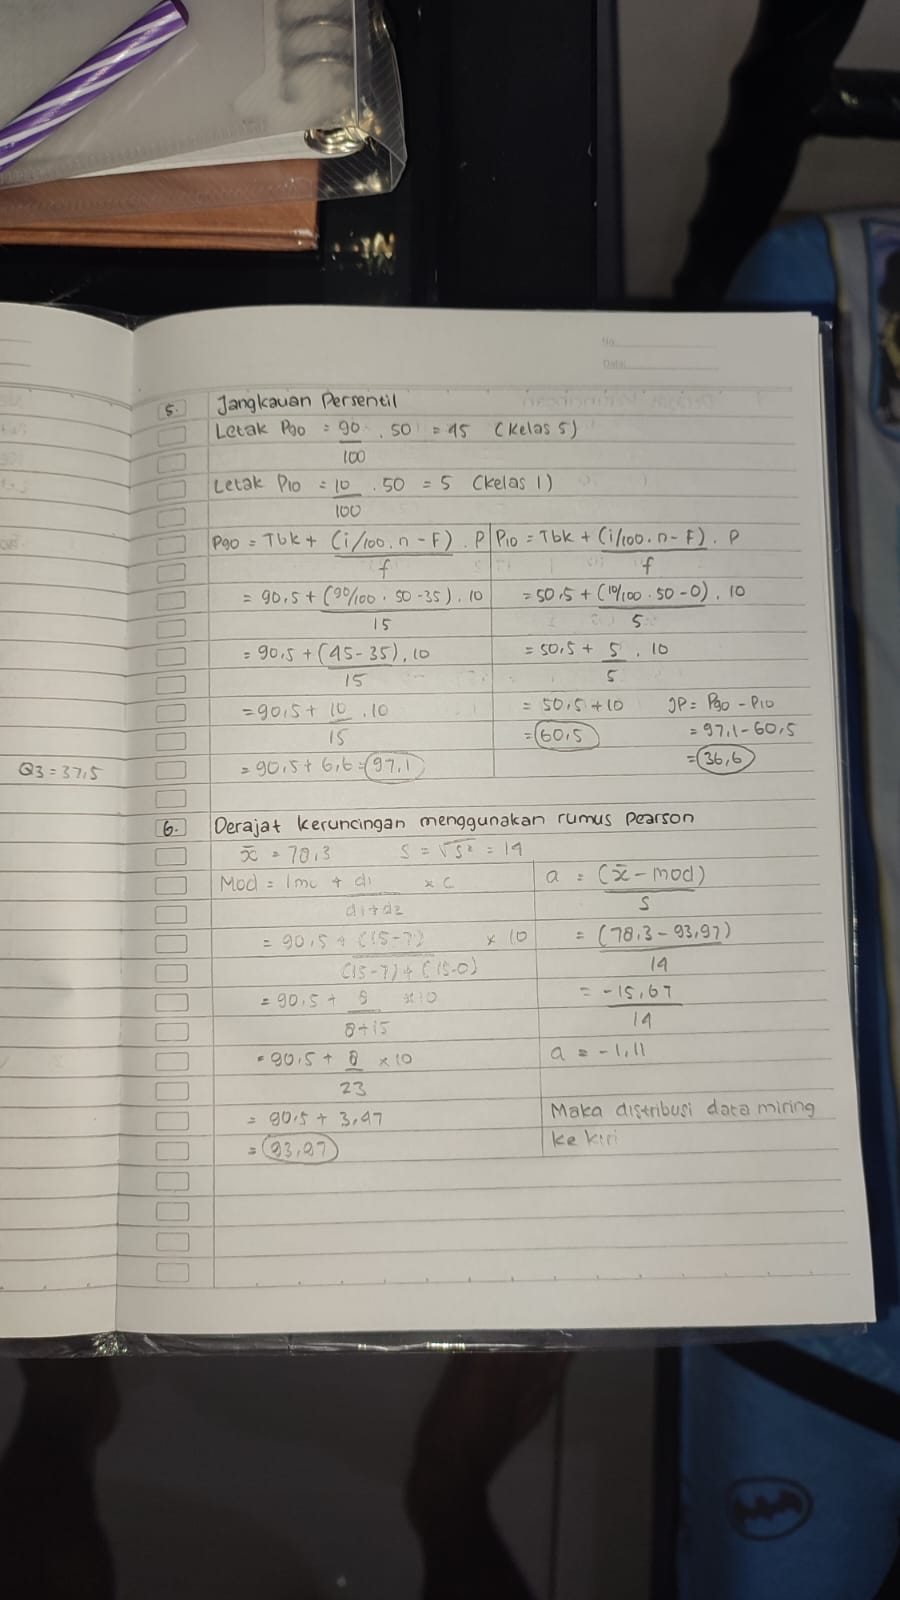 No.
Date:
5. Jangkauan Persentil
Letak P90 = 90/100 . 50 = 45 (kelas 5)
Letak P10 = 10/100 . 50 = 5 (kelas 1)
P90 = Tbk + (i/100.n - F)/f . P
= 90,5 + (90/100 . 50 - 35)/15 . 10
= 90,5 + (45 - 35)/15 . 10
= 90,5 + 10/15 . 10
= 90,5 + 6,6 = 97,1
P10 = Tbk + (i/100.n - F)/f . P
= 50,5 + (10/100 . 50 - 0)/5 . 10
= 50,5 + 5/5 . 10
= 50,5 + 10
= 60,5
JP = P90 - P10
= 97,1 - 60,5
= 36,6
Q3 = 37,5
6. Derajat keruncingan menggunakan rumus Pearson
x̄ = 78,3 S = √S² = 14
Mod = lmo + d1/(d1+d2) x C
= 90,5 + (15-7)/((15-7)+(15-0)) x 10
= 90,5 + 8/(8+15) x 10
= 90,5 + 8/23 x 10
= 90,5 + 3,47
= 93,97
a = (x̄ - mod)/S
= (78,3 - 93,97)/14
= -15,67/14
a = -1,11
Maka distribusi data miring
ke kiri